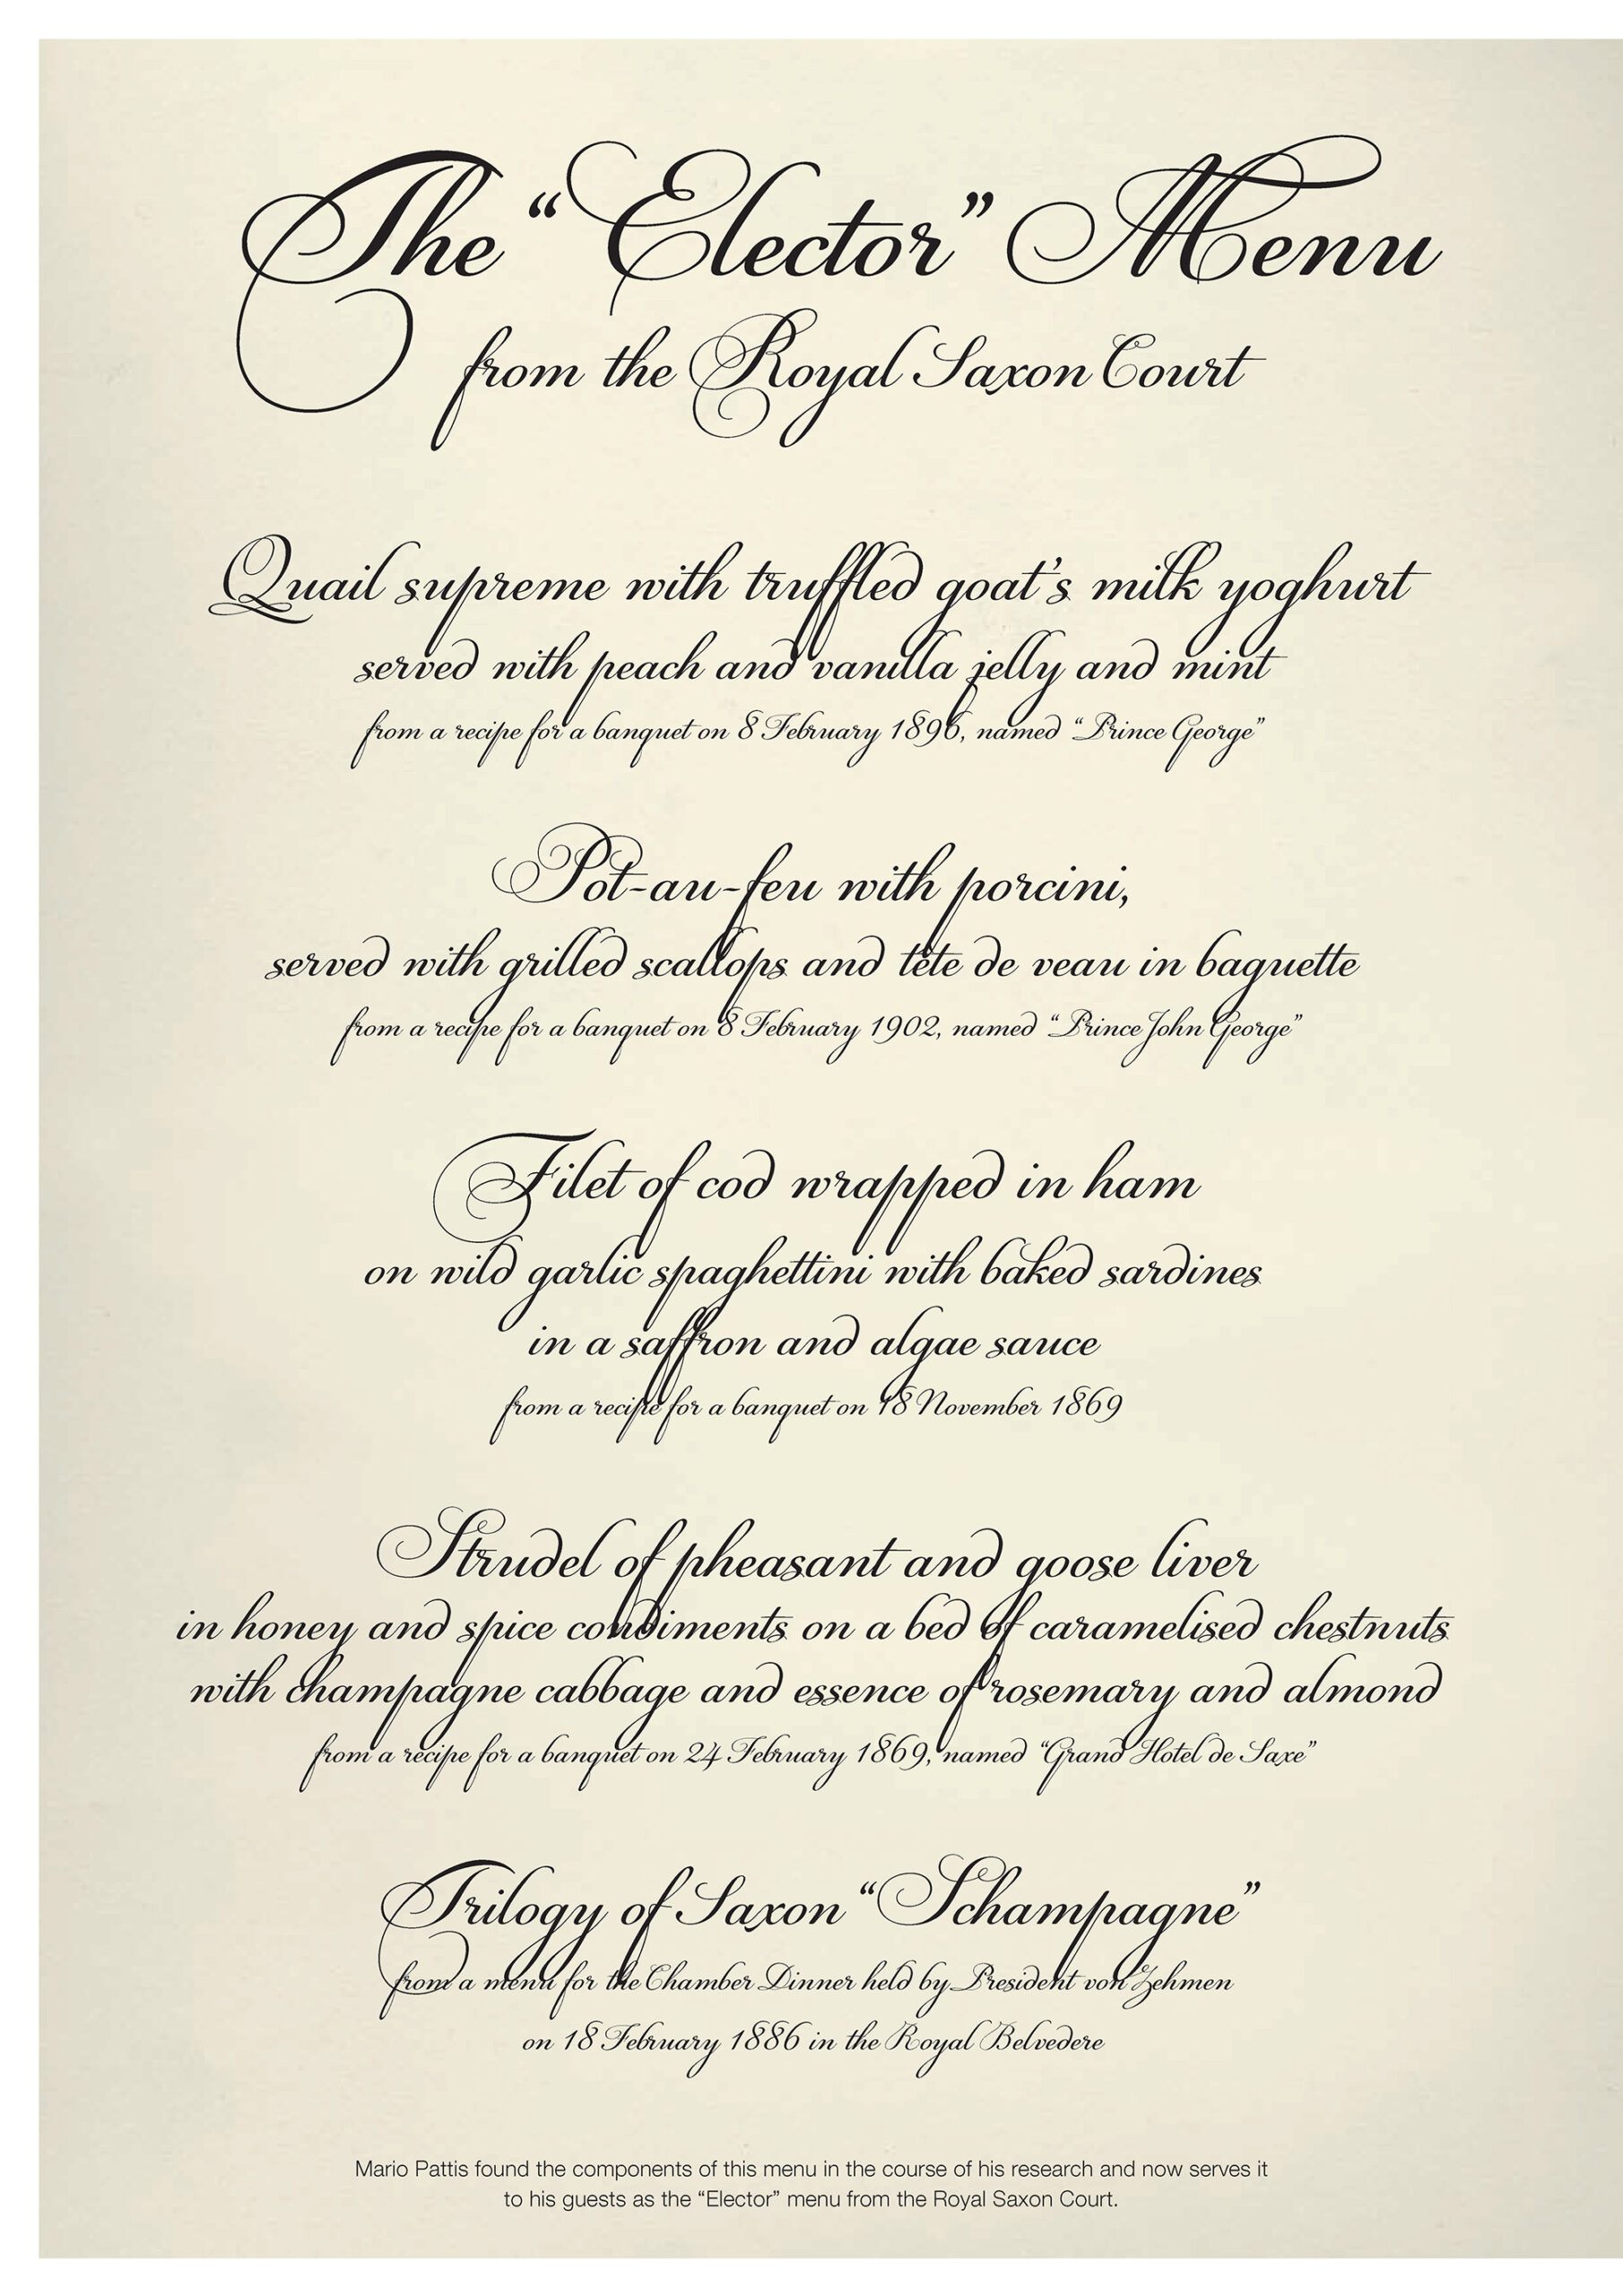 The “Elector” Menu
from the Royal Saxon Court
Quail supreme with truffled goat’s milk yoghurt
served with peach and vanilla jelly and mint
from a recipe for a banquet on 8 February 1896, named “Prince George”
Pot-au-feu with porcini,
served with grilled scallops and tête de veau in baguette
from a recipe for a banquet on 8 February 1902, named “Prince John George”
Filet of cod wrapped in ham
on wild garlic spaghettini with baked sardines
in a saffron and algae sauce
from a recipe for a banquet on 18 November 1869
Strudel of pheasant and goose liver
in honey and spice condiments on a bed of caramelised chestnuts
with champagne cabbage and essence of rosemary and almond
from a recipe for a banquet on 24 February 1869, named “Grand Hotel de Saxe”
Trilogy of Saxon “Schampagne”
from a menu for the Chamber Dinner held by President von Zehmen
on 18 February 1886 in the Royal Belvedere
Mario Pattis found the components of this menu in the course of his research and now serves it
to his guests as the “Elector” menu from the Royal Saxon Court.